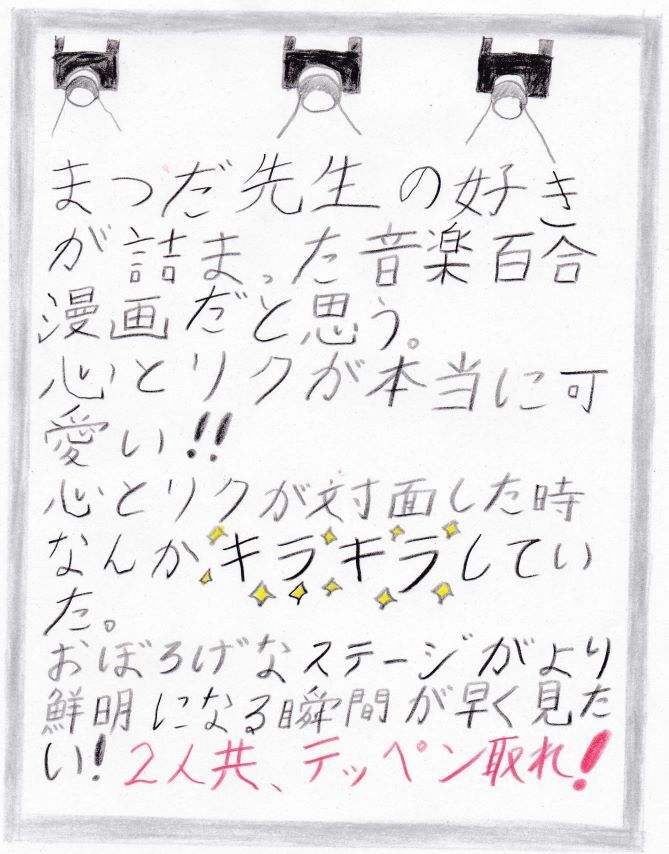 まつだ先生の好き
が詰まった音楽百合
漫画だと思う。
心とリクが本当に可
愛い!!
心とリクが対面した時
なんかキラキラしてい
た。
おぼろげなステージがより
鮮明になる瞬間が早く見た
い!2人共、テッペン取れ!